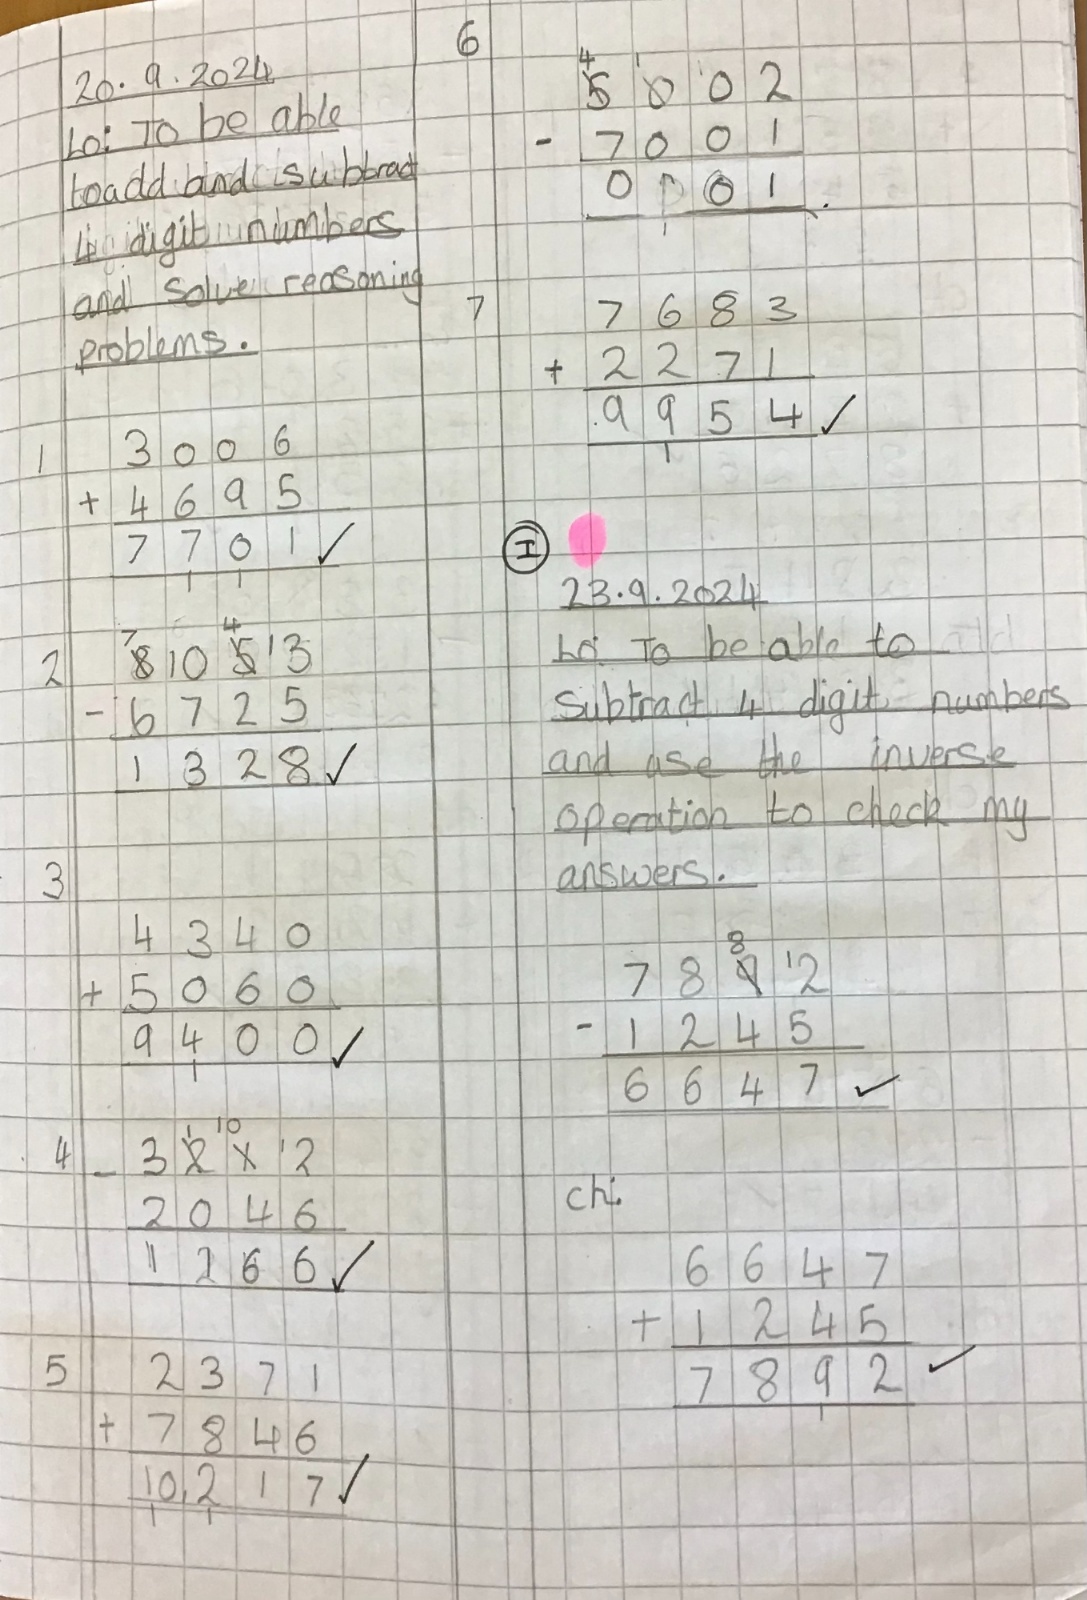 20.9.2024
Lo: To be able
to add and subtract
4 digit numbers
and solve reasoning
problems.
1
3 0 0 6
+ 4 6 9 5
7 7 0 1 ✓
1 1
2
7 4
8 10 5 13
- 6 7 2 5
1 3 2 8 ✓
3
4 3 4 0
+ 5 0 6 0
9 4 0 0 ✓
1
4
1 10
- 3 2 1 12
2 0 4 6
1 2 6 6 ✓
5
2 3 7 1
+ 7 8 4 6
10,2 1 7 ✓
1 1
6
4 1
5 0 0 2
- 7 0 0 1
0 0 0 1 .
1
7
7 6 8 3
+ 2 2 7 1
9 9 5 4 ✓
1
I
23.9.2024
Lo: To be able to
subtract 4 digit numbers
and use the inverse
operation to check my
answers.
8
7 8 9 12
- 1 2 4 5
6 6 4 7 ✓
ch:
6 6 4 7
+ 1 2 4 5
7 8 9 2 ✓
1